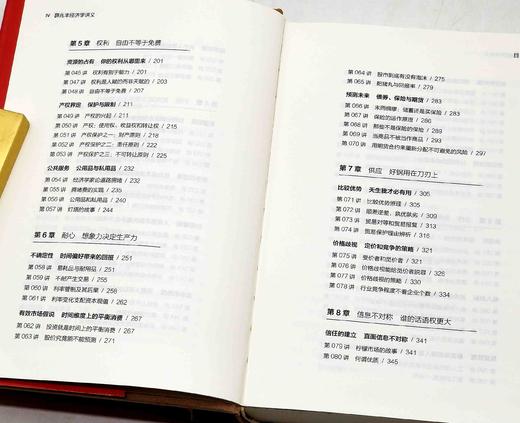 IV 薛兆丰经济学讲义
第5章 权利 自由不等于免费
资源的占有 你的权利从哪里来 / 201
第045讲 权利有别于能力 / 201
第047讲 自由不等于免费 / 203
产权界定 保护与限制 / 211
第049讲 产权的兴起 / 211
第050讲 产权:使用权、收益权和转让权 / 215
第051讲 产权保护之一:财产原则 / 218
第052讲 产权保护之二:责任原则 / 222
第053讲 产权保护之三:不可转让原则 / 225
公共服务 公用品与私用品 / 232
第054讲 经济学家论道路拥堵 / 232
第055讲 拥堵费的实践 / 235
第056讲 公用品和私用品 / 240
第057讲 灯塔的故事 / 244
第6章 耐心 想象力决定生产力
不确定性 时间偏好带来的回报 / 251
第058讲 易耗品与耐用品 / 251
第059讲 不耐产生交易 / 255
第060讲 利率管制及其后果 / 258
第061讲 利率变化支配资本观值 / 262
有效市场假说 时间维度上的平衡消费 / 267
第062讲 投资就是时间上的平衡消费 / 267
第063讲 股价究竟能不能预测 / 271
目
第064讲 股市到底有没有泡沫 / 275
第065讲 耙耧丸与回报率 / 279
预测未来 债券、保险与期货 / 283
第066讲 未雨绸缪,储蓄还是买保险 / 283
第067讲 保险的运作原理 / 286
第068讲 那些不是保险的保险 / 289
第069讲 当商品不被当作商品 / 293
第070讲 用期货合约来重新分配不可避免的风险 / 297
第7章 供应 好钢用在刀刃上
比较优势 天生我才必有用 / 305
第071讲 比较优势原理 / 305
第073讲 贸易对等和贸易报复 / 312
第074讲 贸易保护理由辨析 / 316
价格歧视 定价和竞争的策略 / 321
第075讲 受价者和觅价者 / 321
第078讲 行业竞争程度不看企业个数 / 334
第8章 信息不对称 谁的话语权更大
信任的建立 直面信息不对称 / 341
第079讲 柠檬市场的故事 / 341
第080讲 何谓优质 / 345